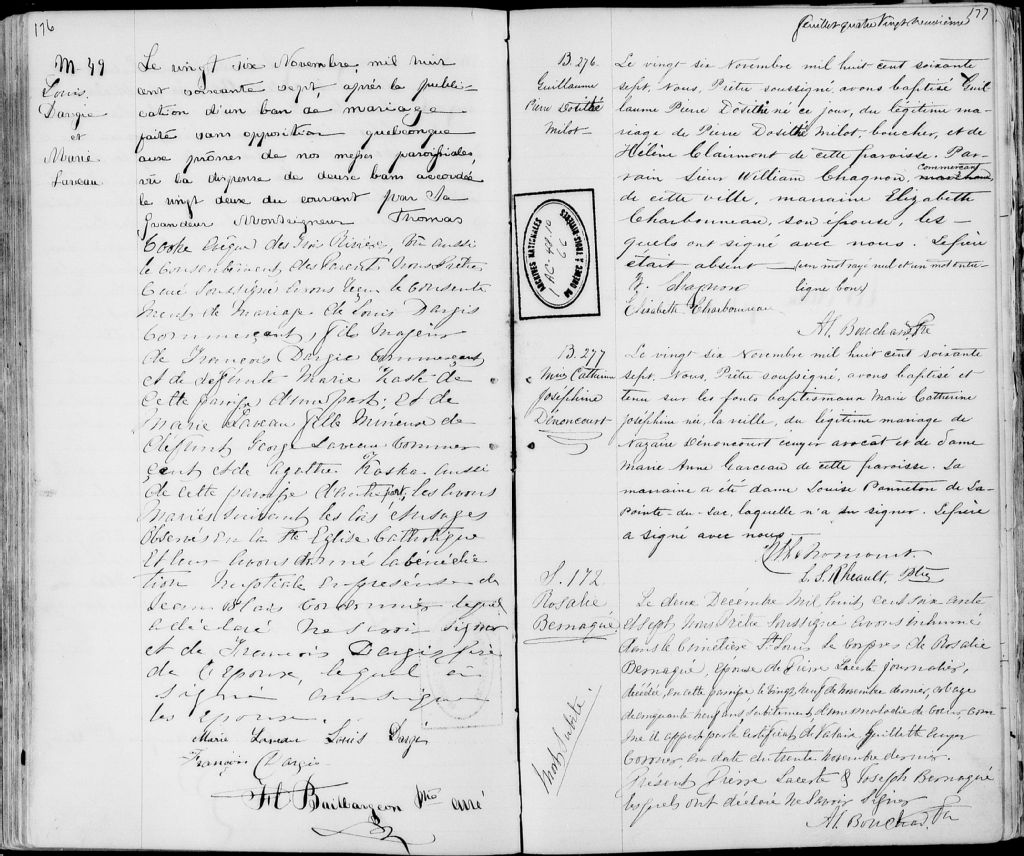 176
M. 49
Louis
Dargie
et
Marie
Laveau
Le vingt six Novembre, mil huit
cent soixante sept après la publi-
cation d'un ban de mariage
faite sans opposition quelconque
aux prônes de nos messes paroissiales,
vu la dispense de deux bans accordée
le vingt deux du courant par Sa
Grandeur Monseigneur Thomas
Cooke Evêque des Trois Rivière, Vu aussi
le consentement des Parents Nous Prêtre
Curé soussigné avons reçu le consente
ment de Mariage de Louis Dargis
Commerçant, fils Majeur
de François Dargie Commerçant
et de défunte Marie Kaské de
Cette paroisse d'une part; et de
Marie Laveau fille Mineure de
Défunt George Laveau Commer
çant et de Agathe Kaska aussi
de cette paroisse d'autre part, les avons
Mariés suivant les lois & usages
Observés en la Ste Eglise Catholique
Et leur avons donné la bénédic
tion Nuptiale en présence de
Jean Blais Cordonnier lequel
a déclaré ne savoir signer
et de François Dargis père
de l'Epoux, lequel a
signé ainsi que
les Epoux.
Marie Laveau Louis Dargie
François Dargis
Baillargeon Ptre curé
177
feuillet quatre Vingt neuvième
B. 276
Guillaume
Pière Dosithé
Milot
Le vingt six Novembre mil huit cent soixante
sept, Nous, Prêtre soussigné, avons baptisé Guil
laume Pière Dosithé né ce jour, du légitime ma-
riage de Pière Dosithé Milot, boucher, et de
Hélène Clairmont de cette paroisse. Par-
rain Sieur William Chagnon, commerçant
de cette ville, marraine Elizabeth
Charbonneau, son épouse, les-
quels ont signé avec nous. Le père
était absent — un mot rayé nul et un mot entre-
ligne bon
W. Chagnon
Elisabeth Charbonneau
Bouchard Ptre
ARCHIVES NATIONALES
DU QUÉBEC À TROIS-RIVIÈRES
B. 277
Marie Catherine
Joséphine
Dénoncourt
Le vingt six Novembre mil huit cent soixante
sept, Nous, Prêtre soussigné, avons baptisé et
tenu sur les fonts baptismaux Marie Catherine
Joséphine née la veille, du légitime mariage de
Nazaire Dénoncourt écuyer avocat et de Dame
Marie Anne Garceau de cette paroisse. La
marraine a été dame Louise Panneton de La
Pointe-du-Lac, laquelle n'a su signer. Le père
a signé avec nous
L. S. Rheault, Ptre
S. 172
Rosalie
Bernaqué
Mort Subite.
Le deux Décembre Mil huit cent soixante
et sept, Nous Prêtre Soussigné avons inhumé
dans le Cimetière St Louis le corps de Rosalie
Bernaqué, Epouse de Pierre Lacerte journalier,
décédée, en cette paroisse le vingt neuf de novembre dernier, et agée
de cinquante neuf ans, subitement, d'une maladie de coeur, com
me il appert par le certificat de Valain Guillett Ecuyer
Coroner, en date du trente Novembre dernier.
Présent Pierre Lacerte & Joseph Bernaqué
lesquels ont déclaré ne savoir signer
Bouchard Ptre